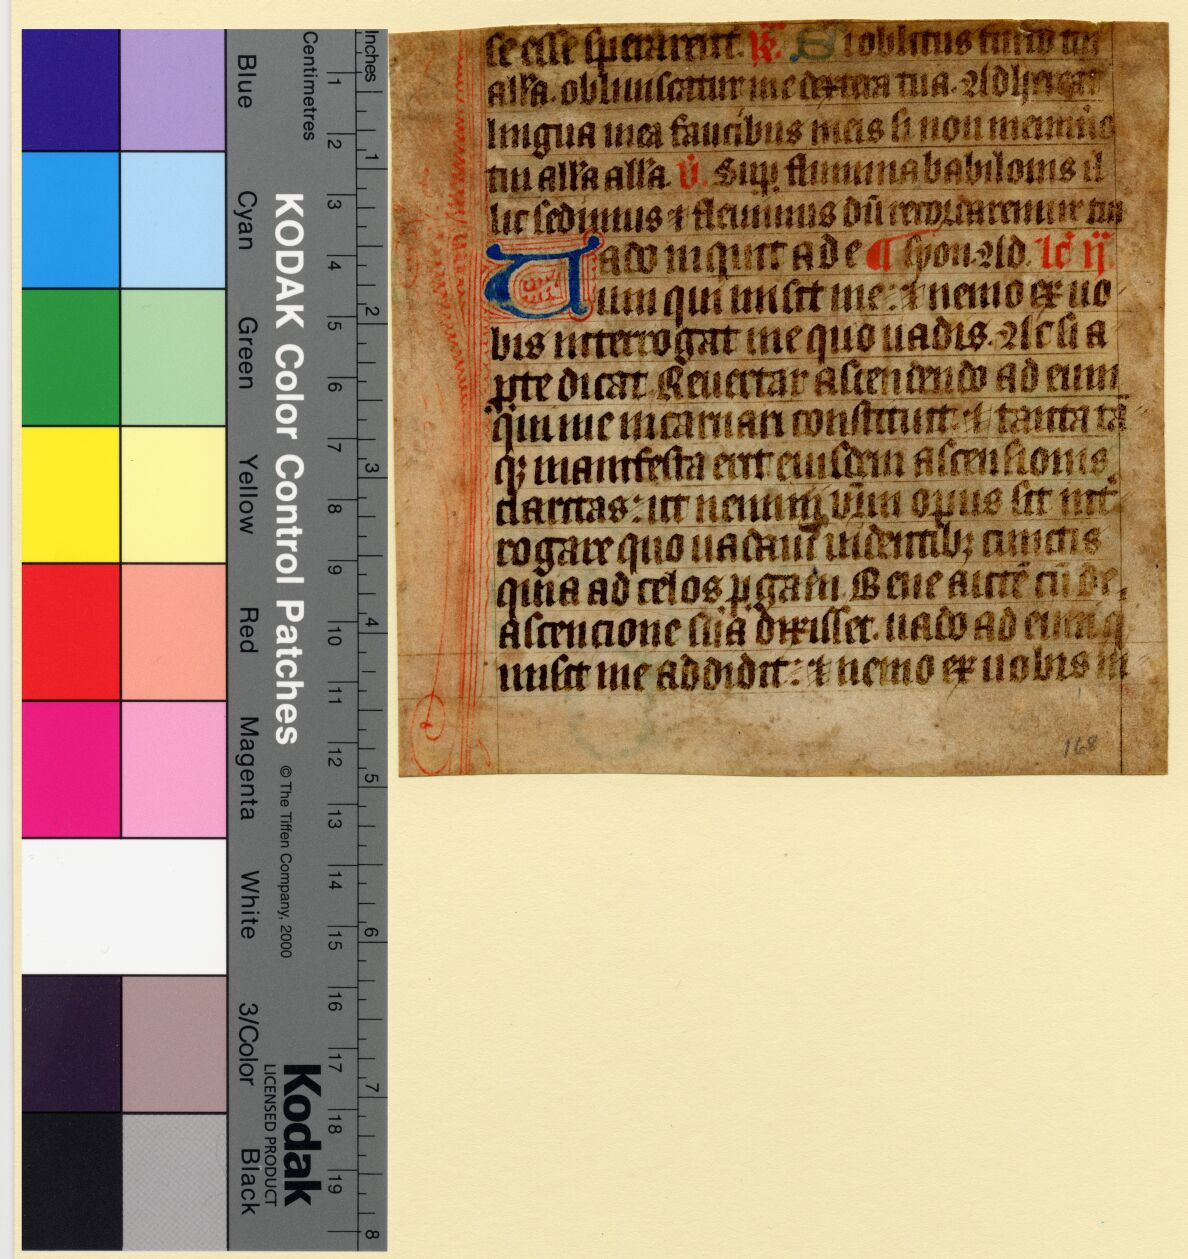 se esse sperarent. R. Si oblitus fuero tui
alla. obliuiscatur me dextera tua. Adhereat
lingua mea faucibus meis si non meminero
tui alla alla. v. Sup flumina babilonis il
lic sedimus ⁊ fleuimus dū recordaremur tui
Uado inquit ad e ¶ syon. Ad. lc̄ ij.
um qui misit me: ⁊ nemo ex uo
bis interrogat me quo uadis. Ac si a
ꝑte dicat. Reuertar ascendendo ad eum
qui me incarnari constituit: ⁊ tanta tā
qȝ manifesta erit eiusdem ascensionis
claritas: ut nemini vr̄m opus sit int̄
rogare quo uadam uidentibȝ cunctis
quia ad celos ꝑgam. Bene autē cū de
ascencione sua dixisset. uado ad eum q
misit me addidit: ⁊ nemo ex uobis in
168
Blue
Cyan
Green
Yellow
Red
Magenta
White
3/Color
Black
KODAK Color Control Patches
© The Tiffen Company, 2000
Kodak
LICENSED PRODUCT
Centimetres
1 2 3 4 5 6 7 8 9 10 11 12 13 14 15 16 17 18 19
Inches
1 2 3 4 5 6 7 8